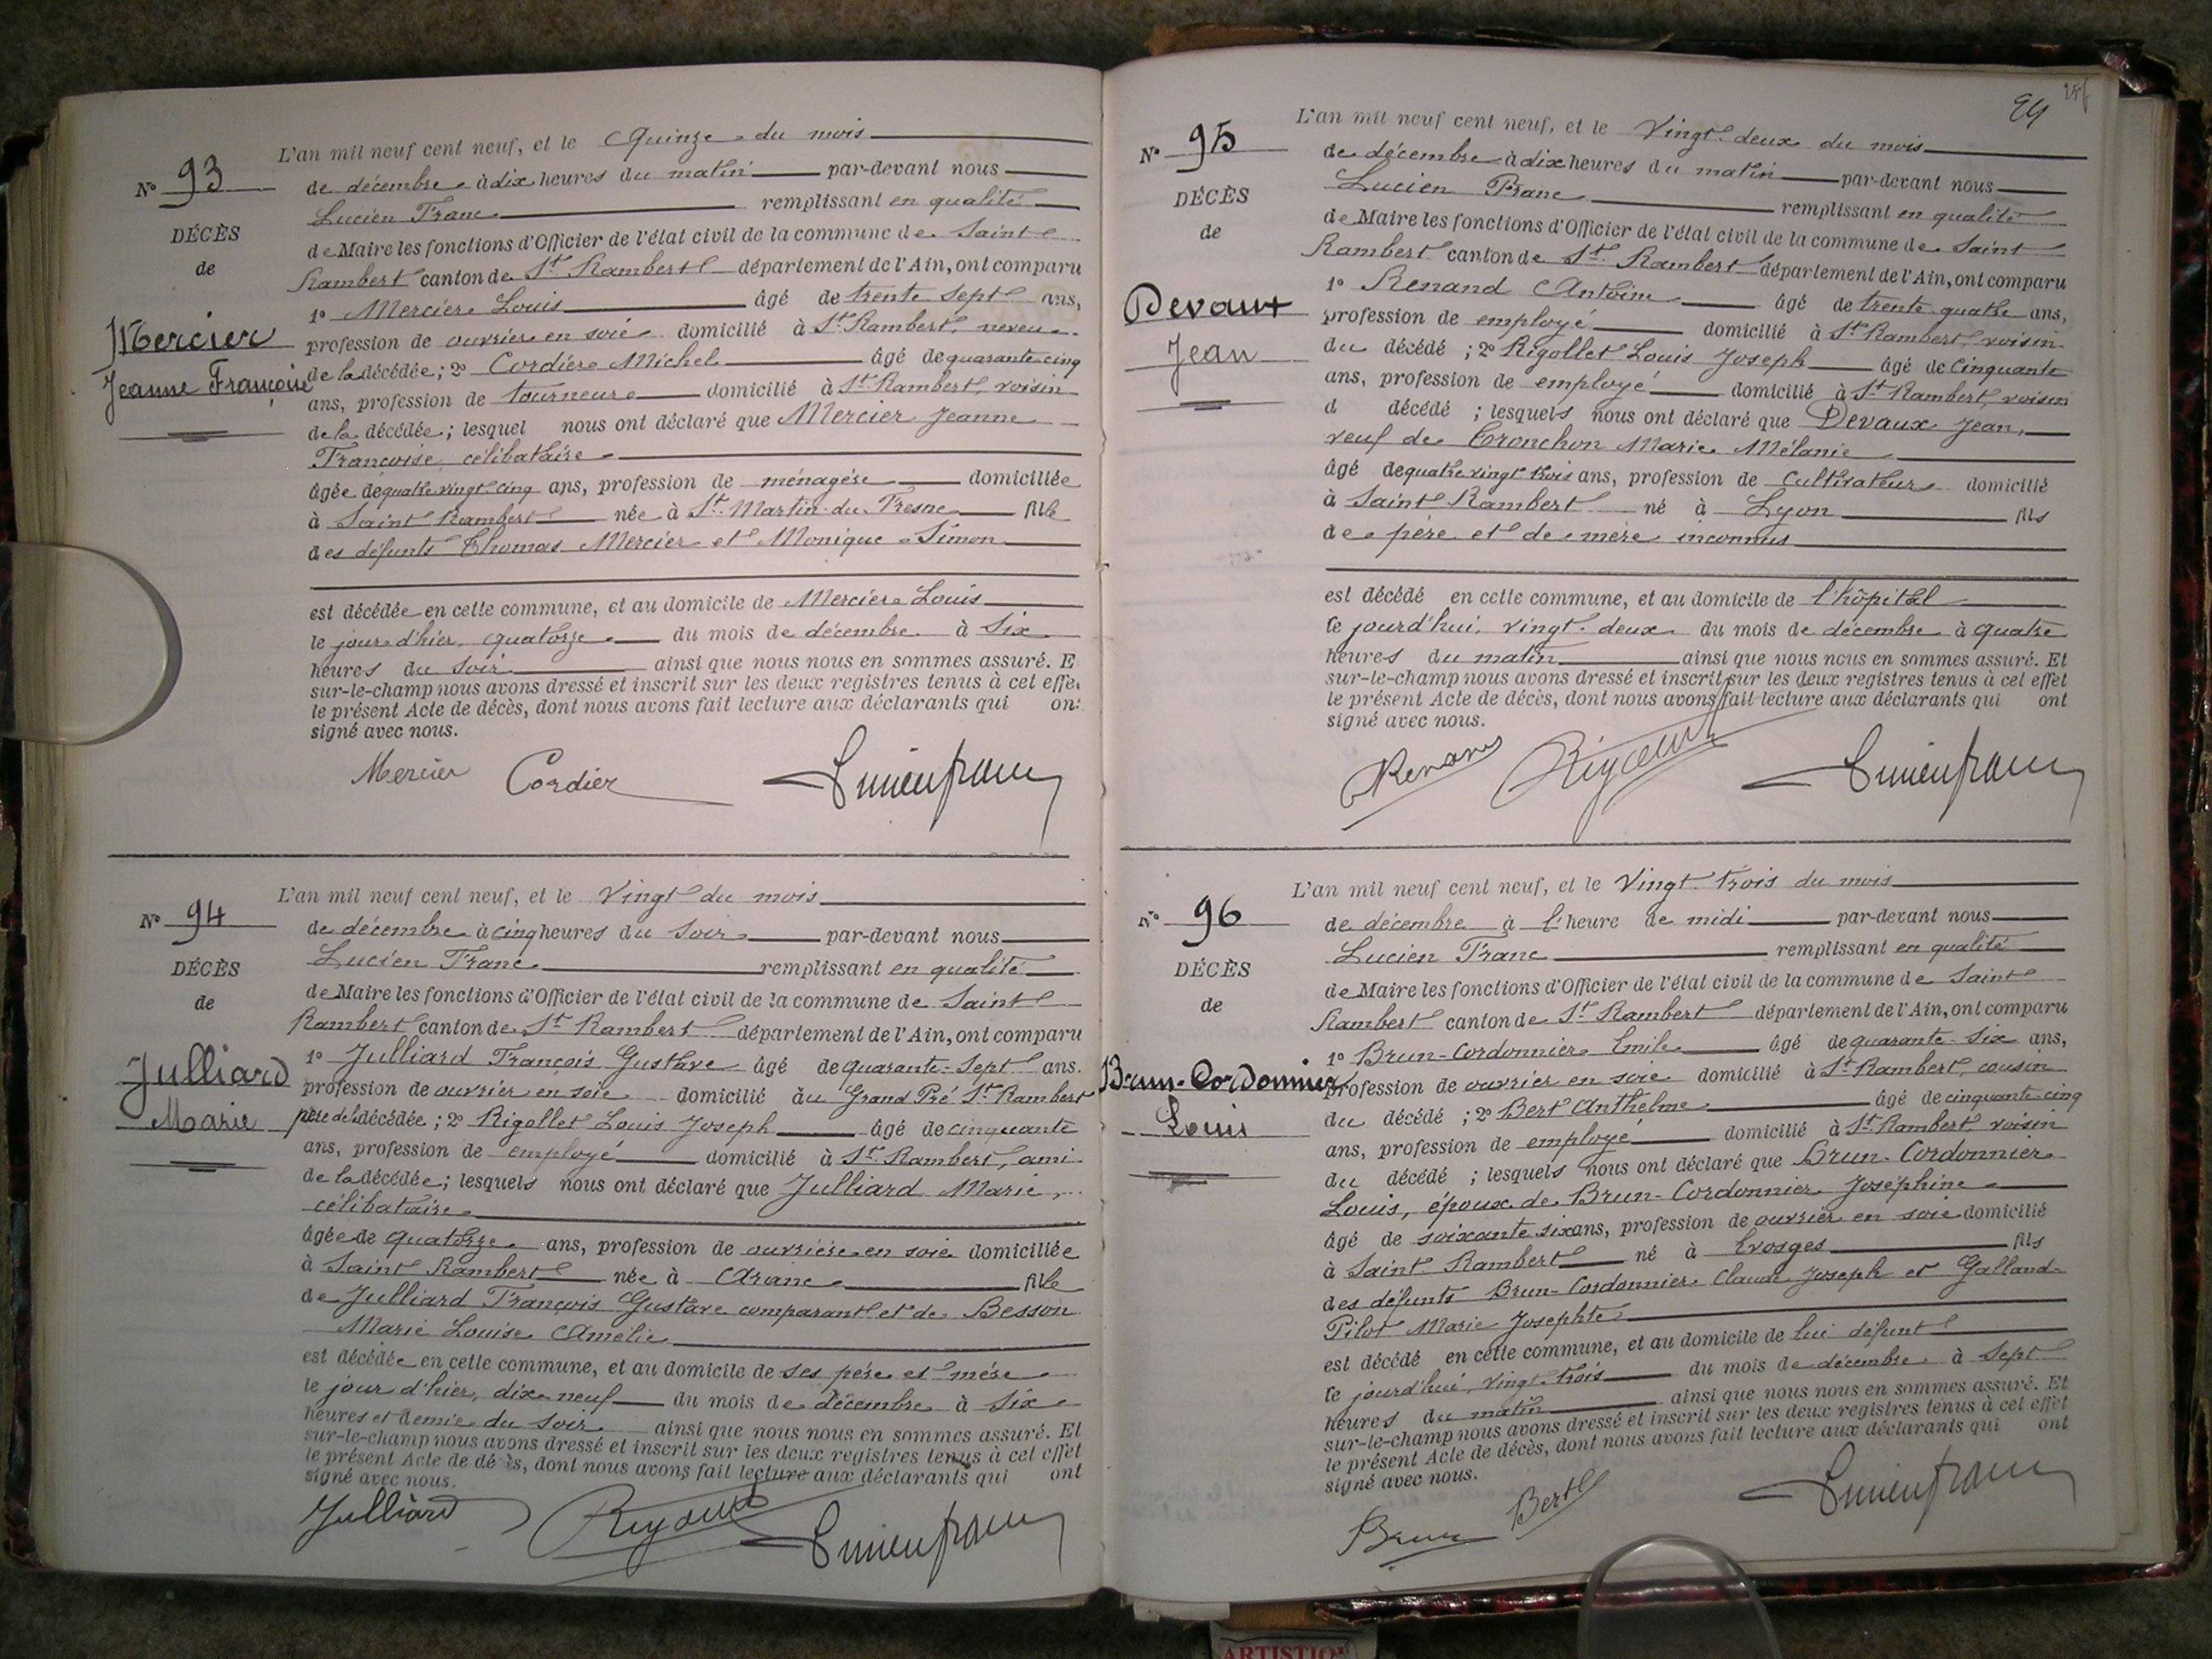 N° 93
DÉCÈS
de
Mercier
Jeanne Françoise
L'an mil neuf cent neuf, et le Quinze du mois
de décembre à dix heures du matin par-devant nous
Lucien Franc remplissant en qualité
de Maire les fonctions d'Officier de l'état civil de la commune de Saint
Rambert canton de St Rambert département de l'Ain, ont comparu
1° Mercier Louis âgé de trente sept ans,
profession de ouvrier en soie domicilié à St Rambert, neveu
de la décédée ; 2° Cordier Michel âgé de quarante-cinq
ans, profession de tourneur domicilié à St Rambert, voisin
de la décédée ; lesquel nous ont déclaré que Mercier Jeanne
Françoise, célibataire
âgée de quatre vingt-cinq ans, profession de ménagère domiciliée
à Saint Rambert née à St Martin-du-Fresne fille
des défunts Thomas Mercier et Monique Simon
est décédée en cette commune, et au domicile de Mercier Louis
le jour d'hier, quatorze du mois de décembre à six
heures du soir ainsi que nous nous en sommes assuré. E
sur-le-champ nous avons dressé et inscrit sur les deux registres tenus à cet effe
le présent Acte de décès, dont nous avons fait lecture aux déclarants qui on
signé avec nous.
Mercier Cordier Lucien franc
N° 94
DÉCÈS
de
Julliard
Marie
L'an mil neuf cent neuf, et le Vingt du mois
de décembre à cinq heures du soir par-devant nous
Lucien Franc remplissant en qualité
de Maire les fonctions d'Officier de l'état civil de la commune de Saint
Rambert canton de St Rambert département de l'Ain, ont comparu
1° Julliard François Gustave âgé de quarante-sept ans.
profession de ouvrier en soie domicilié au Grand Pré St Rambert
père de la décédée ; 2° Rigollet Louis Joseph âgé de cinquante
ans, profession de employé domicilié à St Rambert, ami
de la décédée ; lesquels nous ont déclaré que Julliard Marie,
célibataire
âgée de quatorze ans, profession de ouvrière en soie domiciliée
à Saint Rambert née à Aranc fille
de Julliard François Gustave comparant et de Besson
Marie Louise Amélie
est décédée en cette commune, et au domicile de ses père et mère
le jour d'hier, dix neuf du mois de décembre à six
heures et demie du soir ainsi que nous nous en sommes assuré. Et
sur-le-champ nous avons dressé et inscrit sur les deux registres tenus à cet effet
le présent Acte de dé ès, dont nous avons fait lecture aux déclarants qui ont
signé avec nous.
Julliard Rigollet Lucien franc
94
N° 95
DÉCÈS
de
Devaux
Jean
L'an mil neuf cent neuf, et le Vingt-deux du mois
de décembre à dix heures du matin par-devant nous
Lucien Franc remplissant en qualité
de Maire les fonctions d'Officier de l'état civil de la commune de Saint
Rambert canton de St Rambert département de l'Ain, ont comparu
1° Renand Antoine âgé de trente quatre ans,
profession de employé domicilié à St Rambert, voisin
du décédé ; 2° Rigollet Louis Joseph âgé de cinquante
ans, profession de employé domicilié à St Rambert, voisin
d décédé ; lesquels nous ont déclaré que Devaux Jean,
veuf de Cronchon Marie Mélanie
âgé de quatre vingt trois ans, profession de cultivateur domicilié
à Saint Rambert né à Lyon fils
de père et de mère inconnus
est décédé en cette commune, et au domicile de l'hôpital
le jourd'hui, vingt-deux du mois de décembre à quatre
heures du matin ainsi que nous nous en sommes assuré. Et
sur-le-champ nous avons dressé et inscrit sur les deux registres tenus à cet effet
le présent Acte de décès, dont nous avons fait lecture aux déclarants qui ont
signé avec nous.
Renand Rigollet Lucien franc
N° 96
DÉCÈS
de
Brun-Cordonnier
Louis
L'an mil neuf cent neuf, et le Vingt-trois du mois
de décembre à l'heure de midi par-devant nous
Lucien Franc remplissant en qualité
de Maire les fonctions d'Officier de l'état civil de la commune de Saint
Rambert canton de St Rambert département de l'Ain, ont comparu
1° Brun-Cordonnier Emile âgé de quarante-six ans,
profession de ouvrier en soie domicilié à St Rambert, cousin
du décédé ; 2° Bert Anthelme âgé de cinquante-cinq
ans, profession de employé domicilié à St Rambert voisin
du décédé ; lesquels nous ont déclaré que Brun-Cordonnier
Louis, époux de Brun-Cordonnier Joséphine
âgé de soixante six ans, profession de ouvrier en soie domicilié
à Saint Rambert né à Evosges fils
des défunts Brun-Cordonnier Claude Joseph et Galland-
Pilot Marie Josephte
est décédé en cette commune, et au domicile de lui défunt
le jourd'hui, vingt-trois du mois de décembre à sept
heures du matin ainsi que nous nous en sommes assuré. Et
sur-le-champ nous avons dressé et inscrit sur les deux registres tenus à cet effet
le présent Acte de décès, dont nous avons fait lecture aux déclarants qui ont
signé avec nous.
Brun Bert Lucien franc
ARTISTIQ